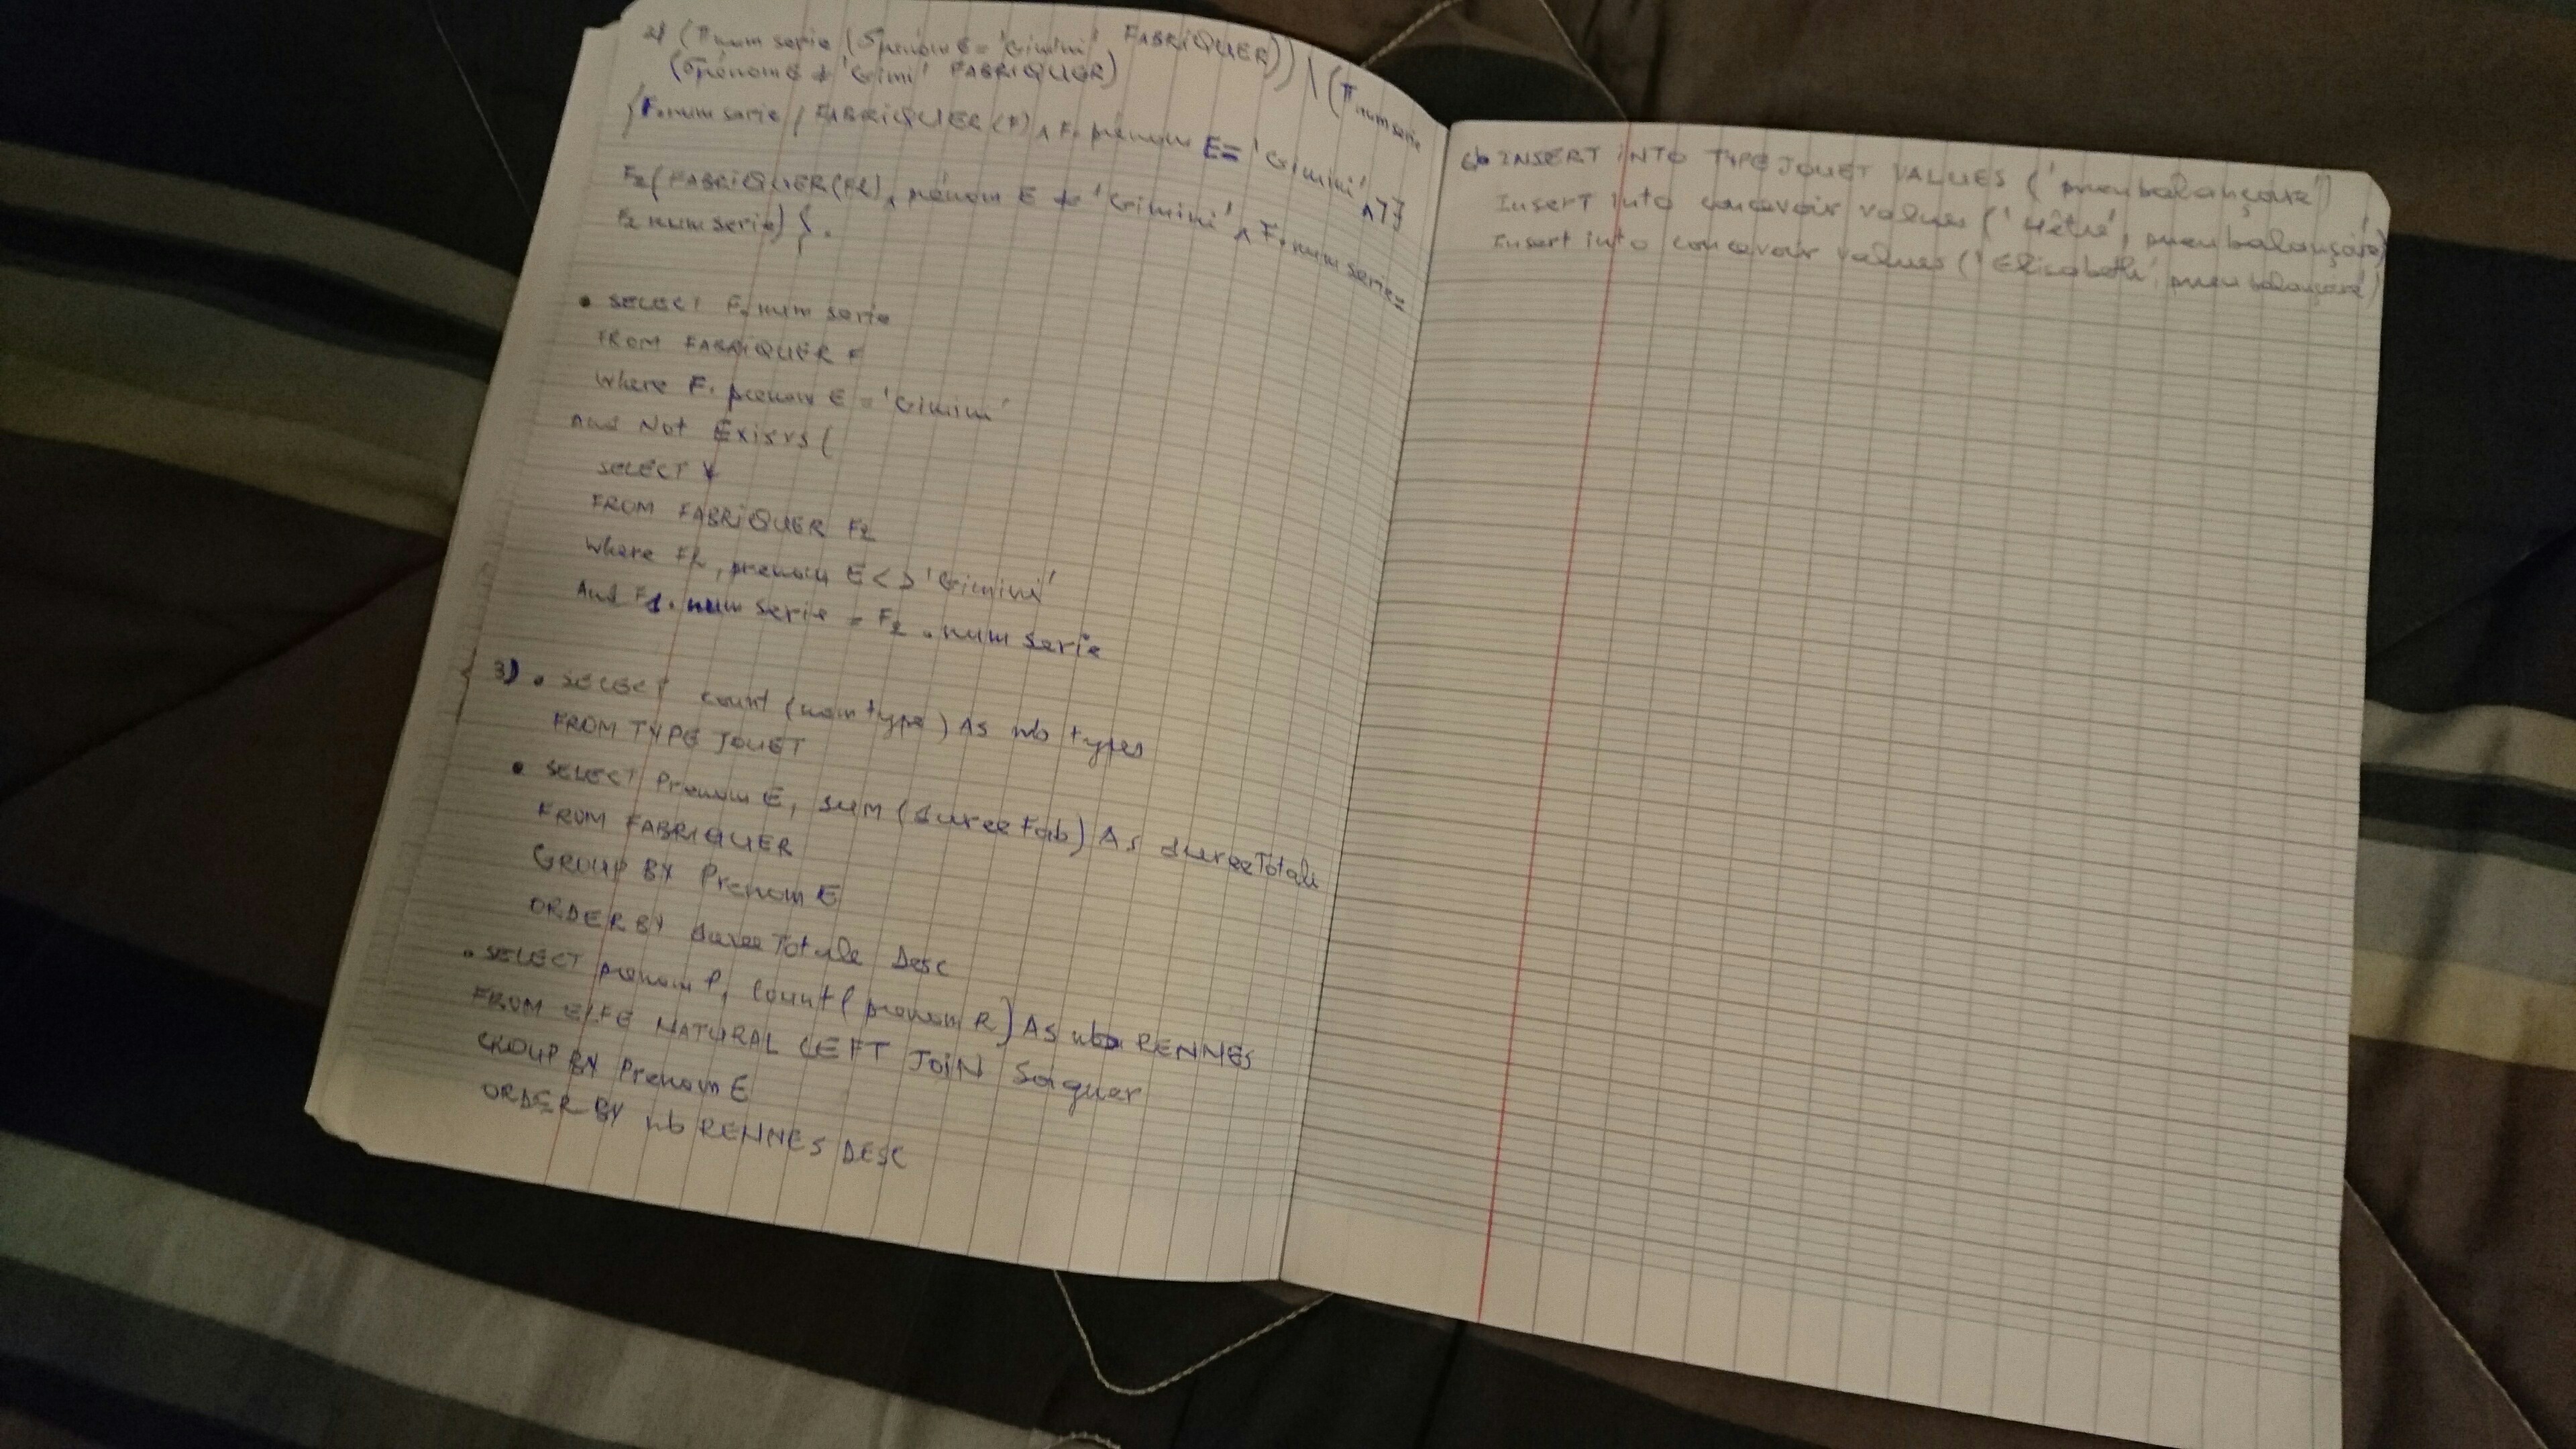 2) (π num serie (σ prénom E = 'Gimini' FABRIQUER)) \ (π num serie
(σ prénom E ≠ 'Gimi' FABRIQUER)
{F.num serie / FABRIQUER (F) ∧ F. prénom E = 'Gimini' ∧ ¬∃
F2 (FABRIQUER(F2) ∧ prénom E ≠ 'Gimini' ∧ F.num serie =
F2 num serie) }.
• SELECT F.num serie
FROM FABRIQUER F
Where F. prenom E = 'Gimini'
And Not Exists (
SELECT *
FROM FABRIQUER F2
Where F2, prenom E <> 'Gimini'
And F1. num serie = F2 . num serie
3) • SELECT count (nom type) AS nb types
FROM TYPE JOUET
• SELECT Prenom E, sum (duree Fab) As duree Totale
FROM FABRIQUER
GROUP BY Prenom E
ORDER BY duree Totale Desc
• SELECT prenom P, count( prenom R) As nb RENNES
FROM ELFE NATURAL LEFT JOIN Soigner
GROUP BY Prenom E
ORDER BY nb RENNES DESC
INSERT INTO TYPE JOUET VALUES ('pneu balançoire')
Insert into concevoir values (' pneu balançoire)
Insert into concevoir values ('Elisabeth', pneu balançoire')